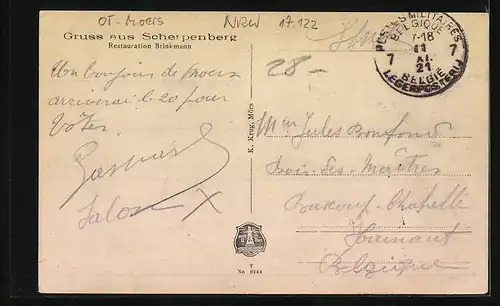 OT-Moers NRW 17.122
Gruss aus Scherpenberg
Restauration Brinkmann
POSTES MILITAIRES
BELGIQUE
7-18
11
7 XI. 7
21
BELGIË
LEGERPOSTERIJ
28-
Un bonjour de moers
arriverai le 20 pour
Voter
Gaspard
Jalon X
K. Krug, Mörs
Jules
Bois-des-
Chapelle
Hainaut
Belgique
T
No 0444